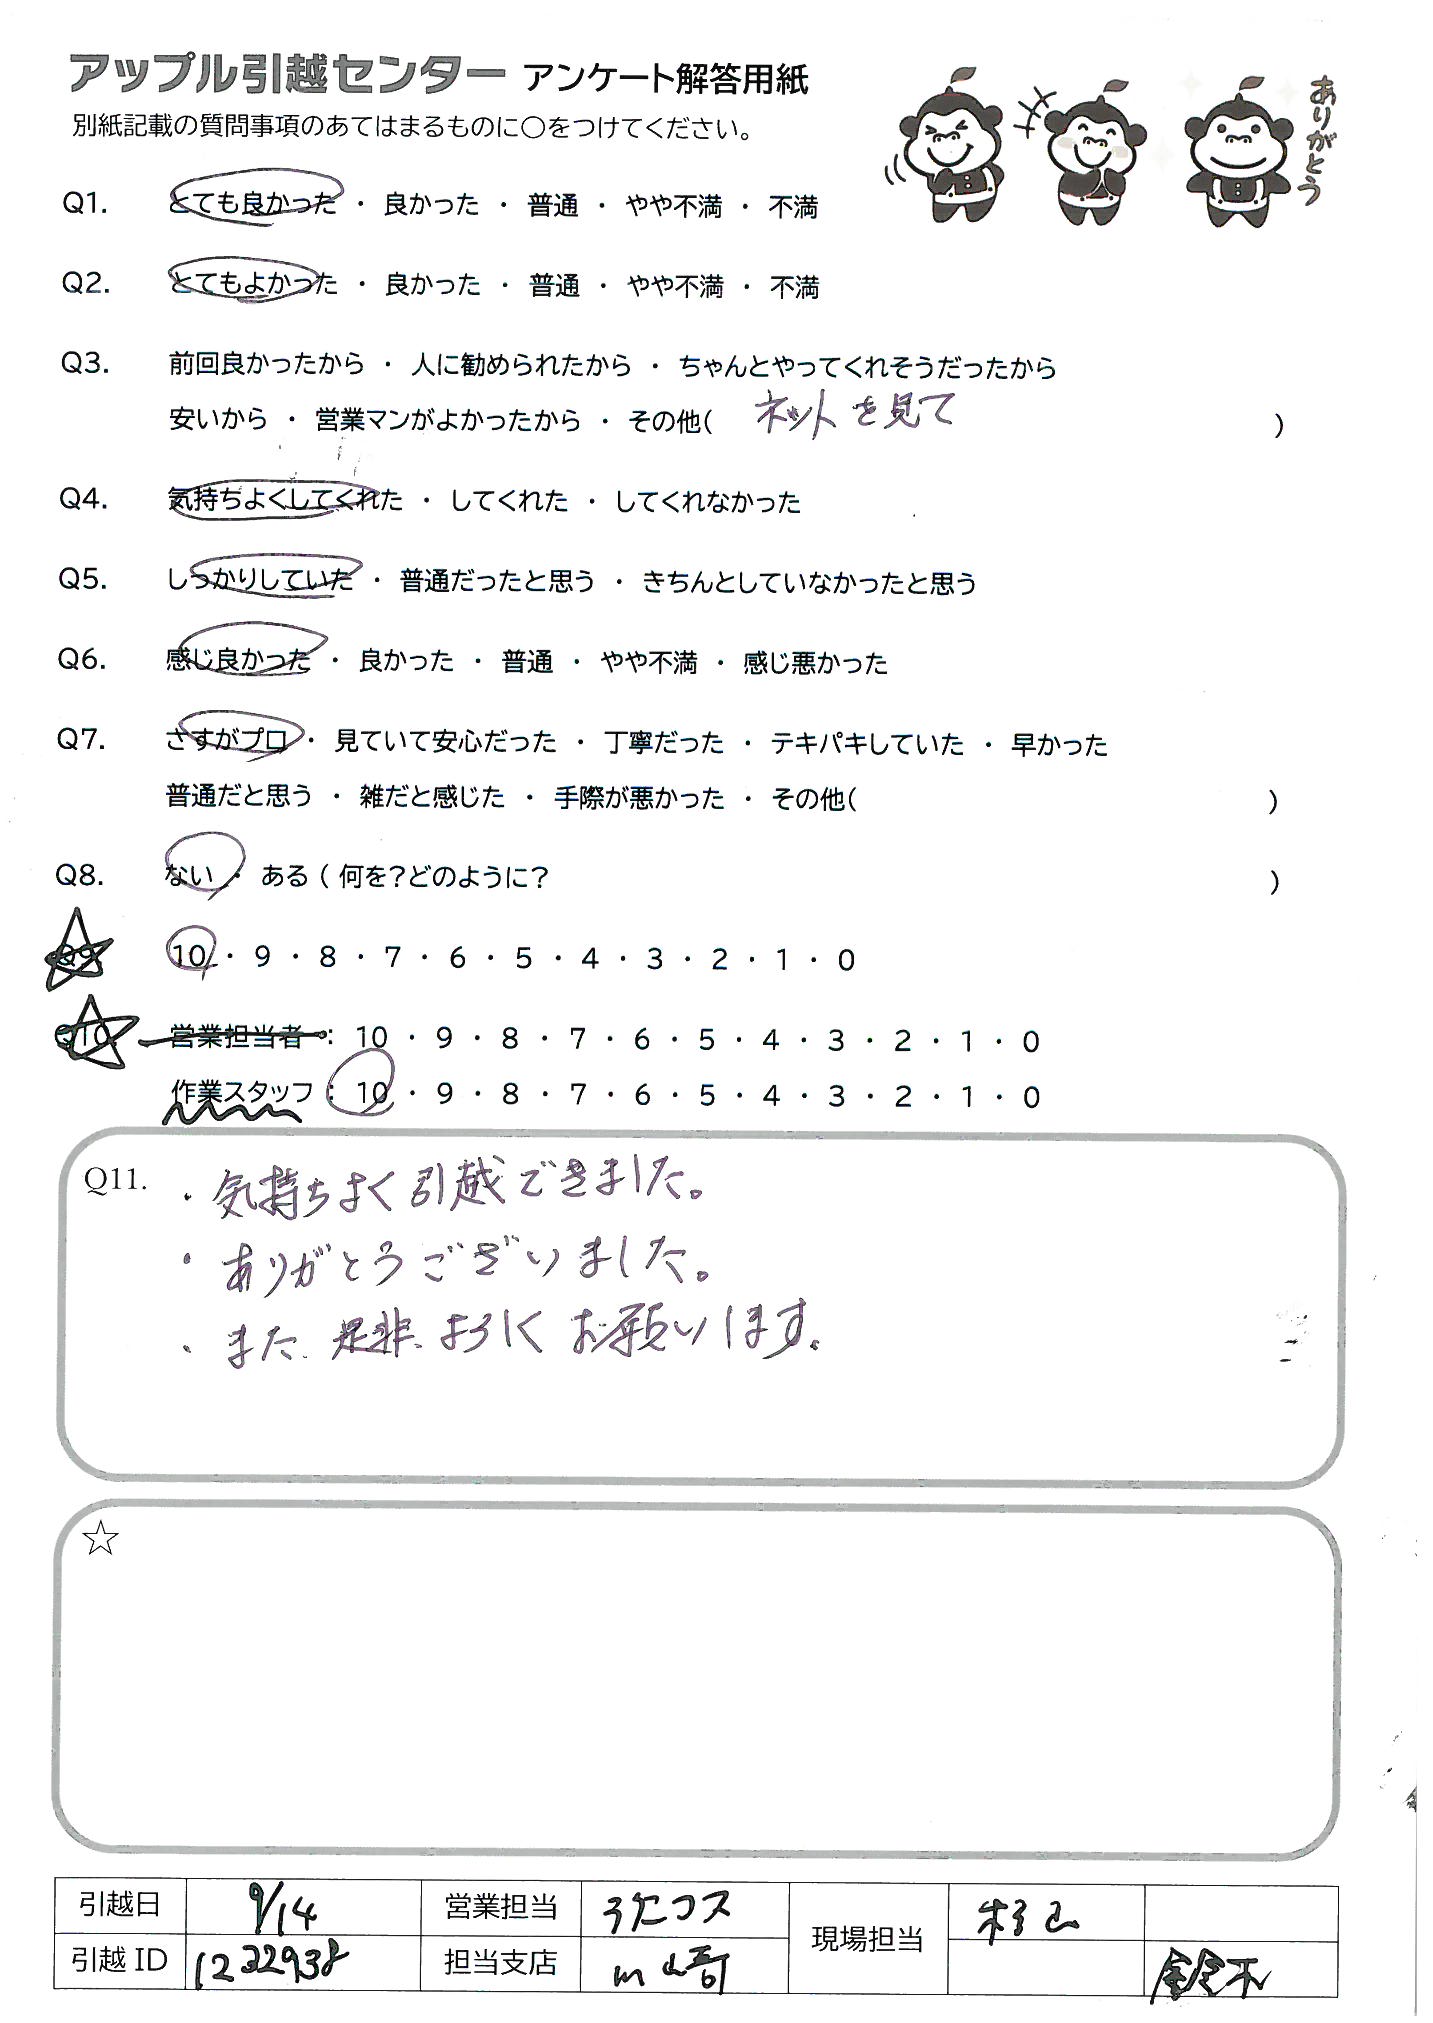 アップル引越センター アンケート解答用紙
別紙記載の質問事項のあてはまるものに○をつけてください。
ありがとう
Q1. とても良かった ・ 良かった ・ 普通 ・ やや不満 ・ 不満
Q2. とてもよかった ・ 良かった ・ 普通 ・ やや不満 ・ 不満
Q3. 前回良かったから ・ 人に勧められたから ・ ちゃんとやってくれそうだったから
安いから ・ 営業マンがよかったから ・ その他( ネットを見て )
Q4. 気持ちよくしてくれた ・ してくれた ・ してくれなかった
Q5. しっかりしていた ・ 普通だったと思う ・ きちんとしていなかったと思う
Q6. 感じ良かった ・ 良かった ・ 普通 ・ やや不満 ・ 感じ悪かった
Q7. さすがプロ ・ 見ていて安心だった ・ 丁寧だった ・ テキパキしていた ・ 早かった
普通だと思う ・ 雑だと感じた ・ 手際が悪かった ・ その他( )
Q8. ない ・ ある ( 何を?どのように? )
Q9. 10 ・ 9 ・ 8 ・ 7 ・ 6 ・ 5 ・ 4 ・ 3 ・ 2 ・ 1 ・ 0
Q10. 営業担当者 : 10 ・ 9 ・ 8 ・ 7 ・ 6 ・ 5 ・ 4 ・ 3 ・ 2 ・ 1 ・ 0
作業スタッフ : 10 ・ 9 ・ 8 ・ 7 ・ 6 ・ 5 ・ 4 ・ 3 ・ 2 ・ 1 ・ 0
Q11. ・気持ちよく引越できました。
・ありがとうございました。
・また、是非、よろしくお願いします。
☆
引越日 9/14 営業担当 現場担当 杉山
引越 ID 1232938 担当支店 川崎 鈴木